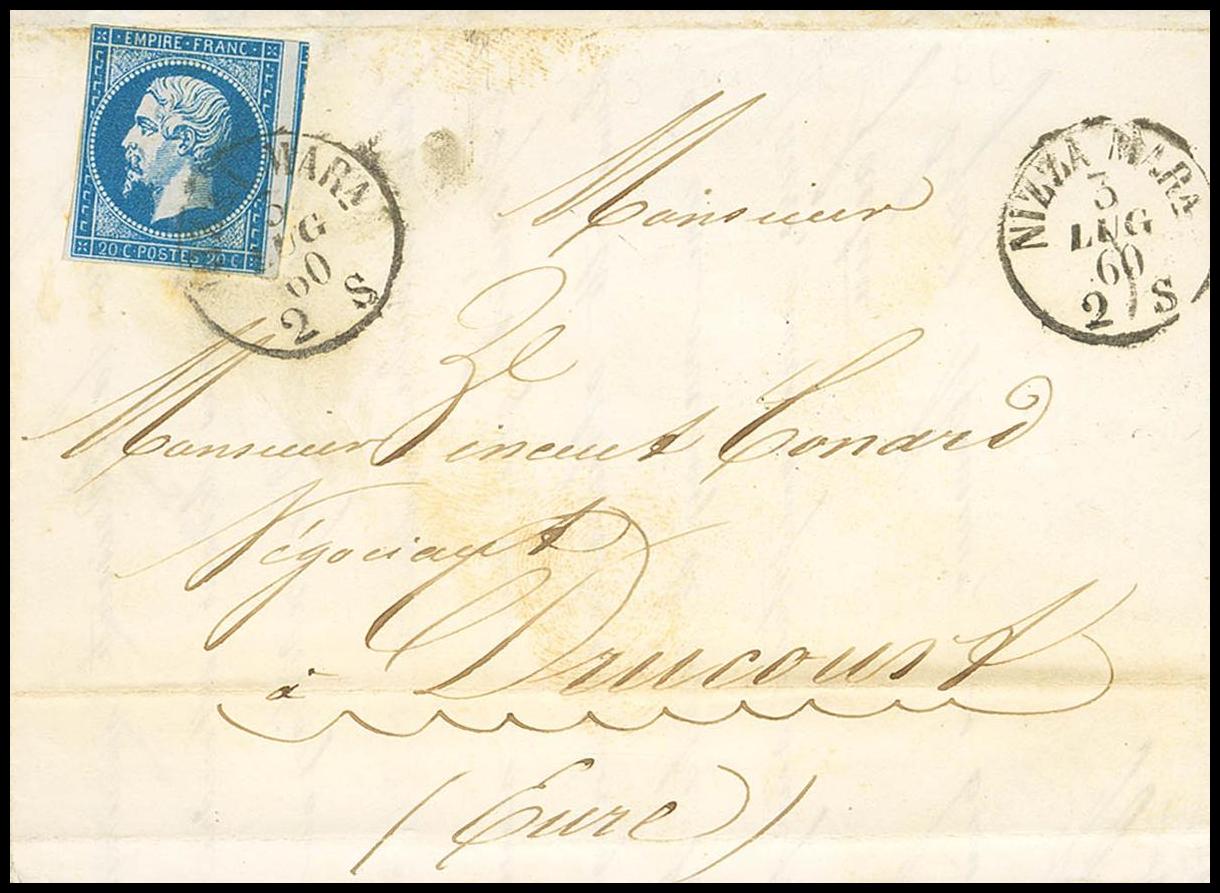 EMPIRE · FRANC ·
20 C · POSTES · 20 C
MARA
UG
60
2 S
NIZZA MARA
3
LUG
60
2 S
Monsieur
Monsieur Vincent Conard
Négociant
à Drucourt
(Eure)